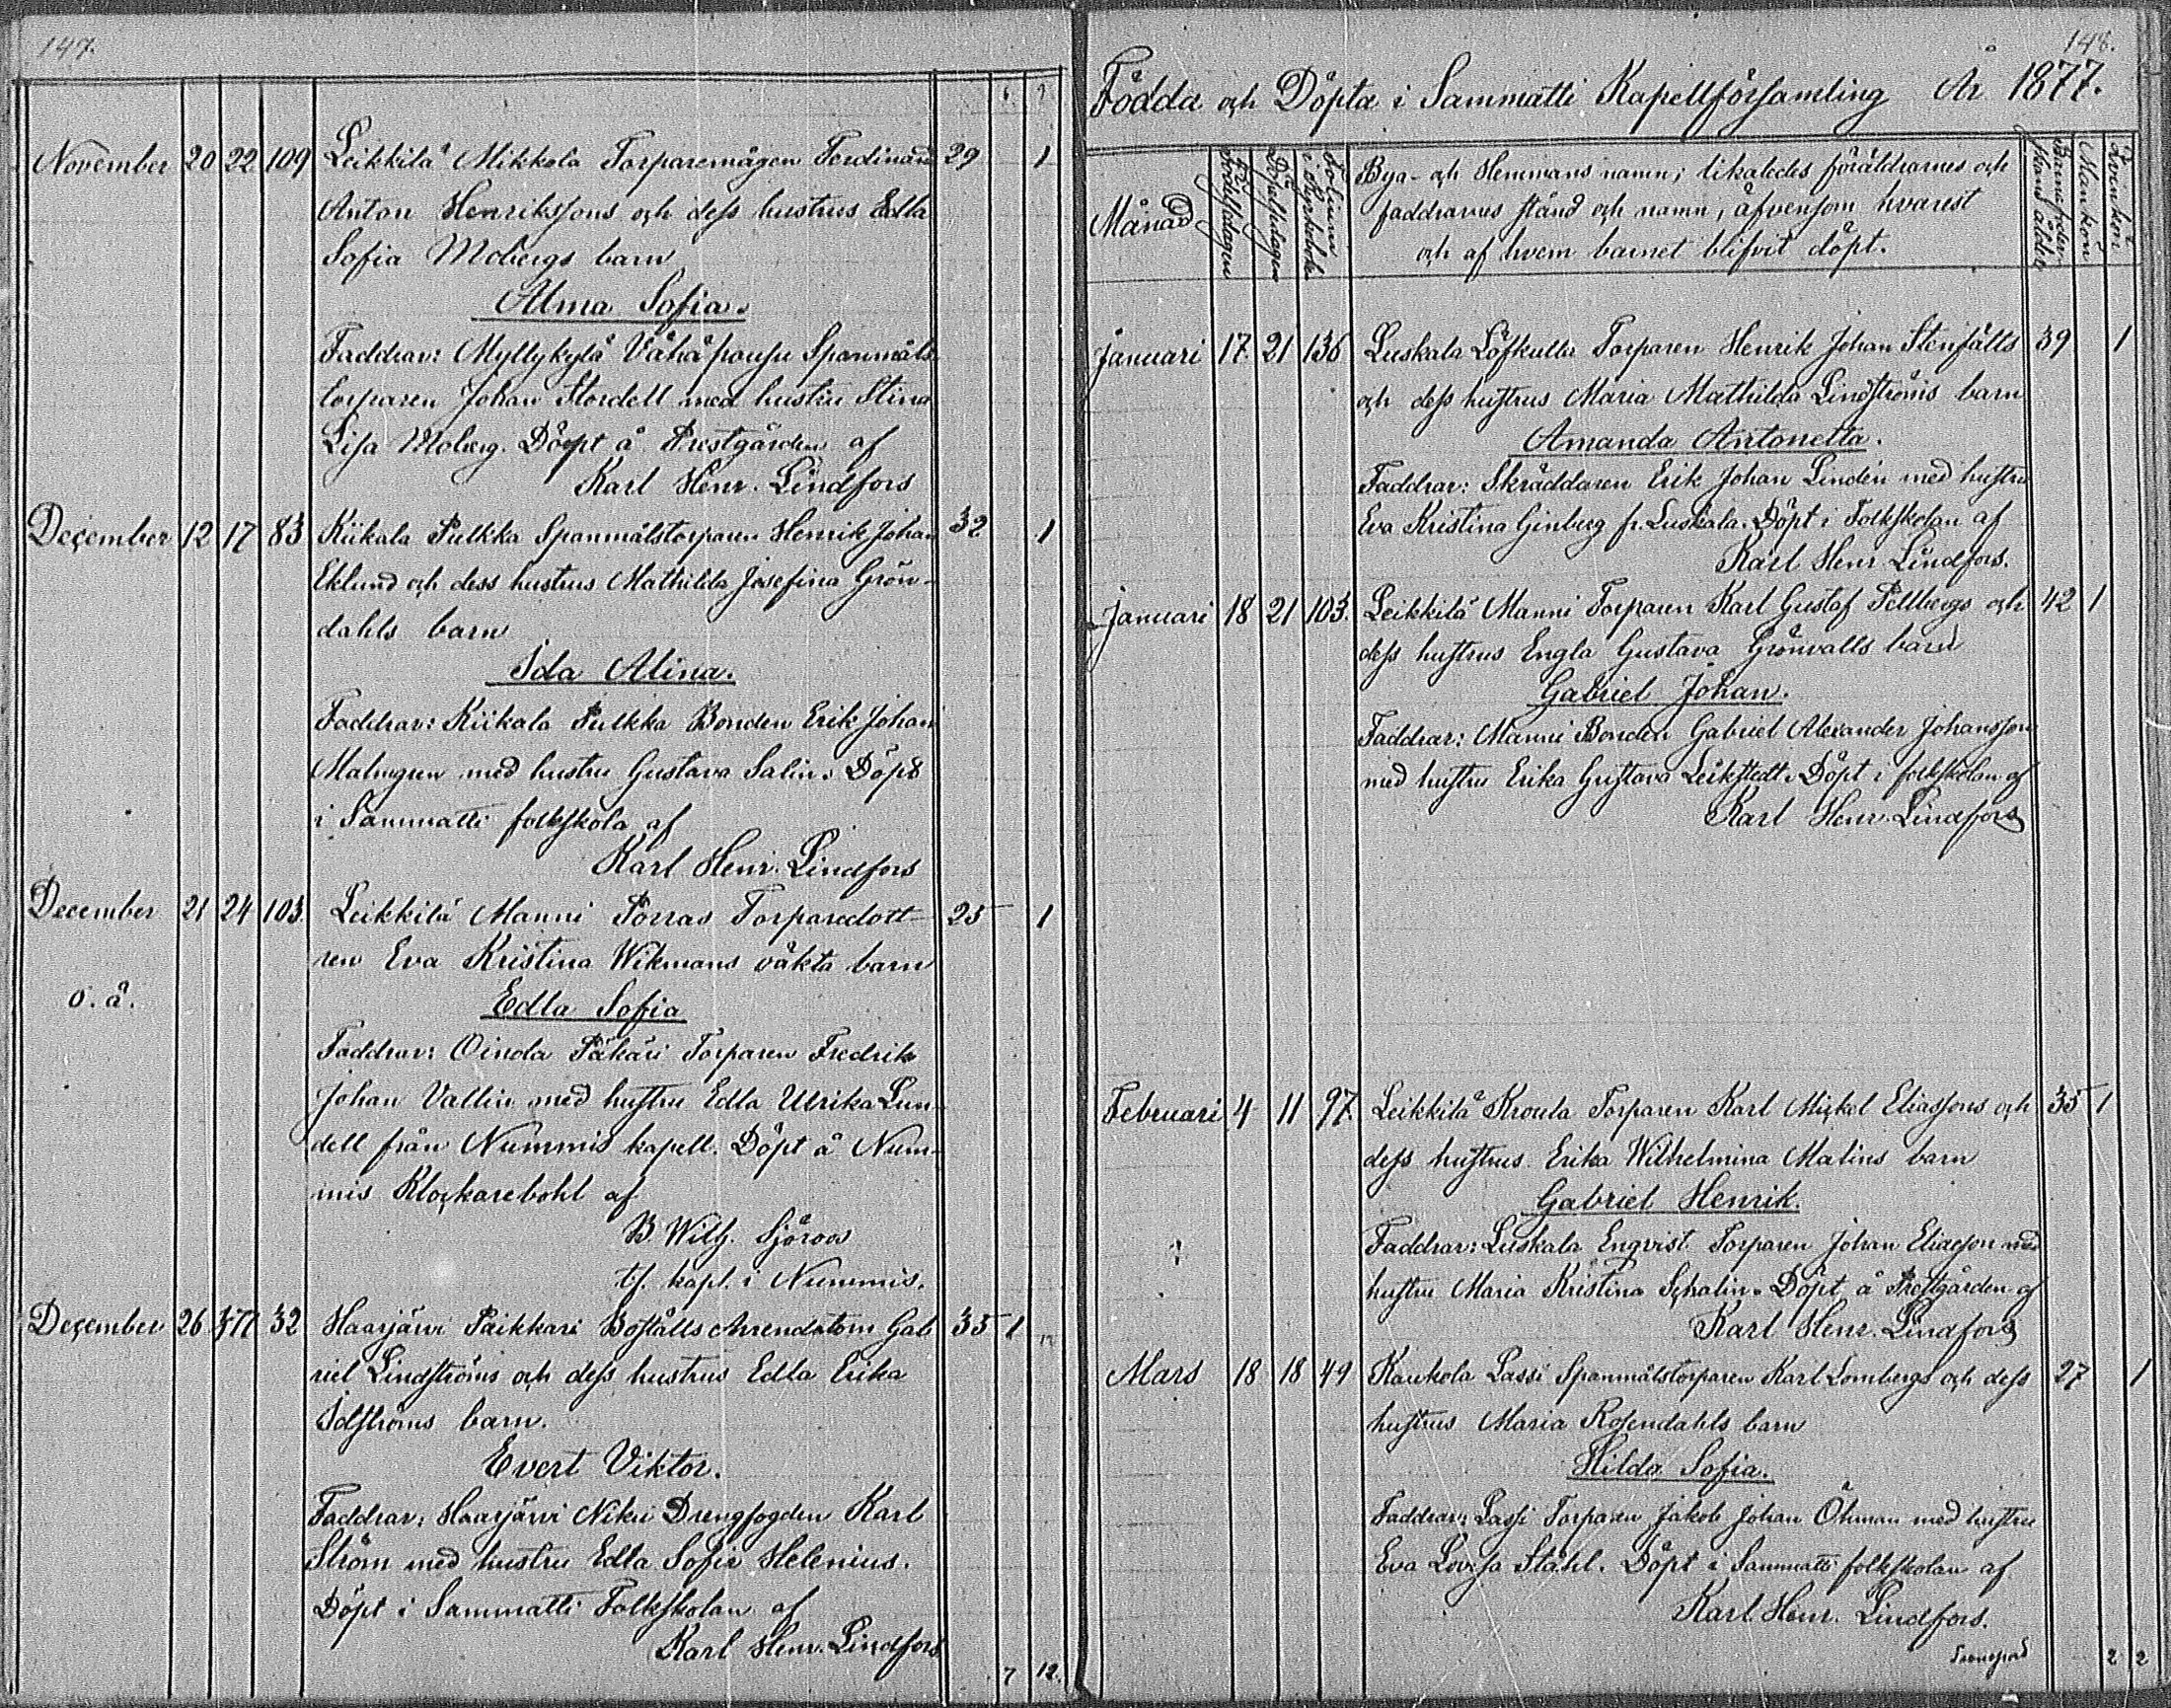 147.
6 9
November 20 22 109 Leikkilä Mikkola Torparemågen Ferdinand 29 1
Anton Henrikssons och dess hustrus Edla
Sofia Mobergs barn
Alma Sofia.
Faddrar: Myllykylä Vähäpousu Spanmåls-
torparen Johan Stordell med hustru Stina
Lisa Moberg. Döpt å Prestgården af
Karl Henr. Lindfors
December 12 17 83 Kiikala Pulkka Spanmålstorparen Henrik Johan 32 1
Eklund och dess hustrus Mathilda Josefina Grön-
dahls barn
Ida Alina.
Faddrar: Kiikala Pulkka Bonden Erik Johan
Malmgren med hustru Gustava Salin. Döpt
i Sammatti folkskola af
Karl Henr. Lindfors
December 21 24 103 Leikkilä Manni Porras Torparedott- 25 1
ren Eva Kristina Wikmans oäkta barn
o. ä.
Edla Sofia
Faddrar: Oinola Päkäri Torparen Fredrik
Johan Vallin med hustru Edla Ulrika Lun-
dell från Nummis kapell. Döpt å Num-
mis Klockarebohl af
B. Wilh. Sjöroos
tf. kapl. i Nummis.
December 26 32 Haarjärvi Paikkari Boställs Arrendatorn Gab- 35 1
riel Lindströms och dess hustrus Edla Erika
Idströms barn.
Evert Viktor.
Faddrar: Haarjärvi Niku Drengfogden Karl
Ström med hustru Edla Sofia Helenius.
Döpt i Sammatti Folkskolan af
Karl Henr. Lindfors
7 12.
148.
Födda och Döpta i Sammatti Kapellförsamling År 1877.
Månad
Födelsedagen
Döpelsedagen
Folium i Kyrkobok
Bya- och Hemmans namn; likaledes föräldrarnes och
faddrarnes stånd och namn, äfvensom hvarest
och af hvem barnet blifvit döpt.
Barnaföder-
skans ålder
Mankön
Qvinkön
Januari 17. 21 136 Luskala Löfkulla Torparen Henrik Johan Stenfälts 39 1
och dess hustrus Maria Mathilda Lindströms barn
Amanda Antonetta.
Faddrar: Skräddaren Erik Johan Lindén med hustru
Eva Kristina Ginberg fr. Luskala. Döpt i Folkskolan af
Karl Henr Lindfors.
Januari 18 21 103. Leikkilä Manni Torparen Karl Gustaf Pellbergs och 42 1
dess hustrus Engla Gustava Grönvalls barn
Gabriel Johan.
Faddrar: Manni Bonden Gabriel Alexander Johansson
med hustru Erika Gustava Leikstedt. Döpt i folkskolan af
Karl Henr. Lindfors
Februari 4 11 97. Leikkilä Kroula Torparen Karl Mickel Eliassons och 35 1
dess hustrus Erika Wilhelmina Malins barn
Gabriel Henrik.
Faddrar: Luskala Enqvist Torparen Johan Eliasson med
hustru Maria Kristina Schalin. Döpt å Prestgården af
Karl Henr. Lindfors
Mars 18 18 49 Kaukola Lassi Spanmålstorparen Karl Lombergs och dess 27 1
hustrus Maria Rosendahls barn
Hilda Sofia.
Faddrar: Lassi Torparen Jakob Johan Öhman med hustru
Eva Lovisa Ståhl. Döpt i Sammatti folkskolan af
Karl Henr. Lindfors.
2 2